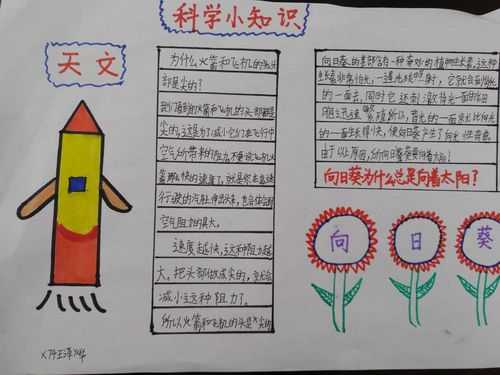 科学小知识
天文
为什么火箭和飞机的头
都是尖的?
我们看到的火箭和飞机的头部都是
尖的,这是为了减小它们在飞行中
空气所带来的阻力,不要说飞机火
箭那么快的速度了,就是你在高速
行驶的汽车伸出头来,也会体会到
空气阻力的具大。
速度越快,这种阻力越
大,把头部做成尖的,就会
减小这种阻力了。
所以火箭和飞机的头是尖的
向日葵的茎部含有一种奇妙的植物生长素,这种
生长素非常怕光,一遇光线照射,它就会到背光
的一面去,同时它还刺激背光一面的细
胞迅速繁殖所以,背光的一面就比向光
的一面生长得快,使向日葵产生了向光性弯曲
由于以上原因,所向日葵总是向着太阳!
向日葵为什么总是向着太阳?
向
日
葵